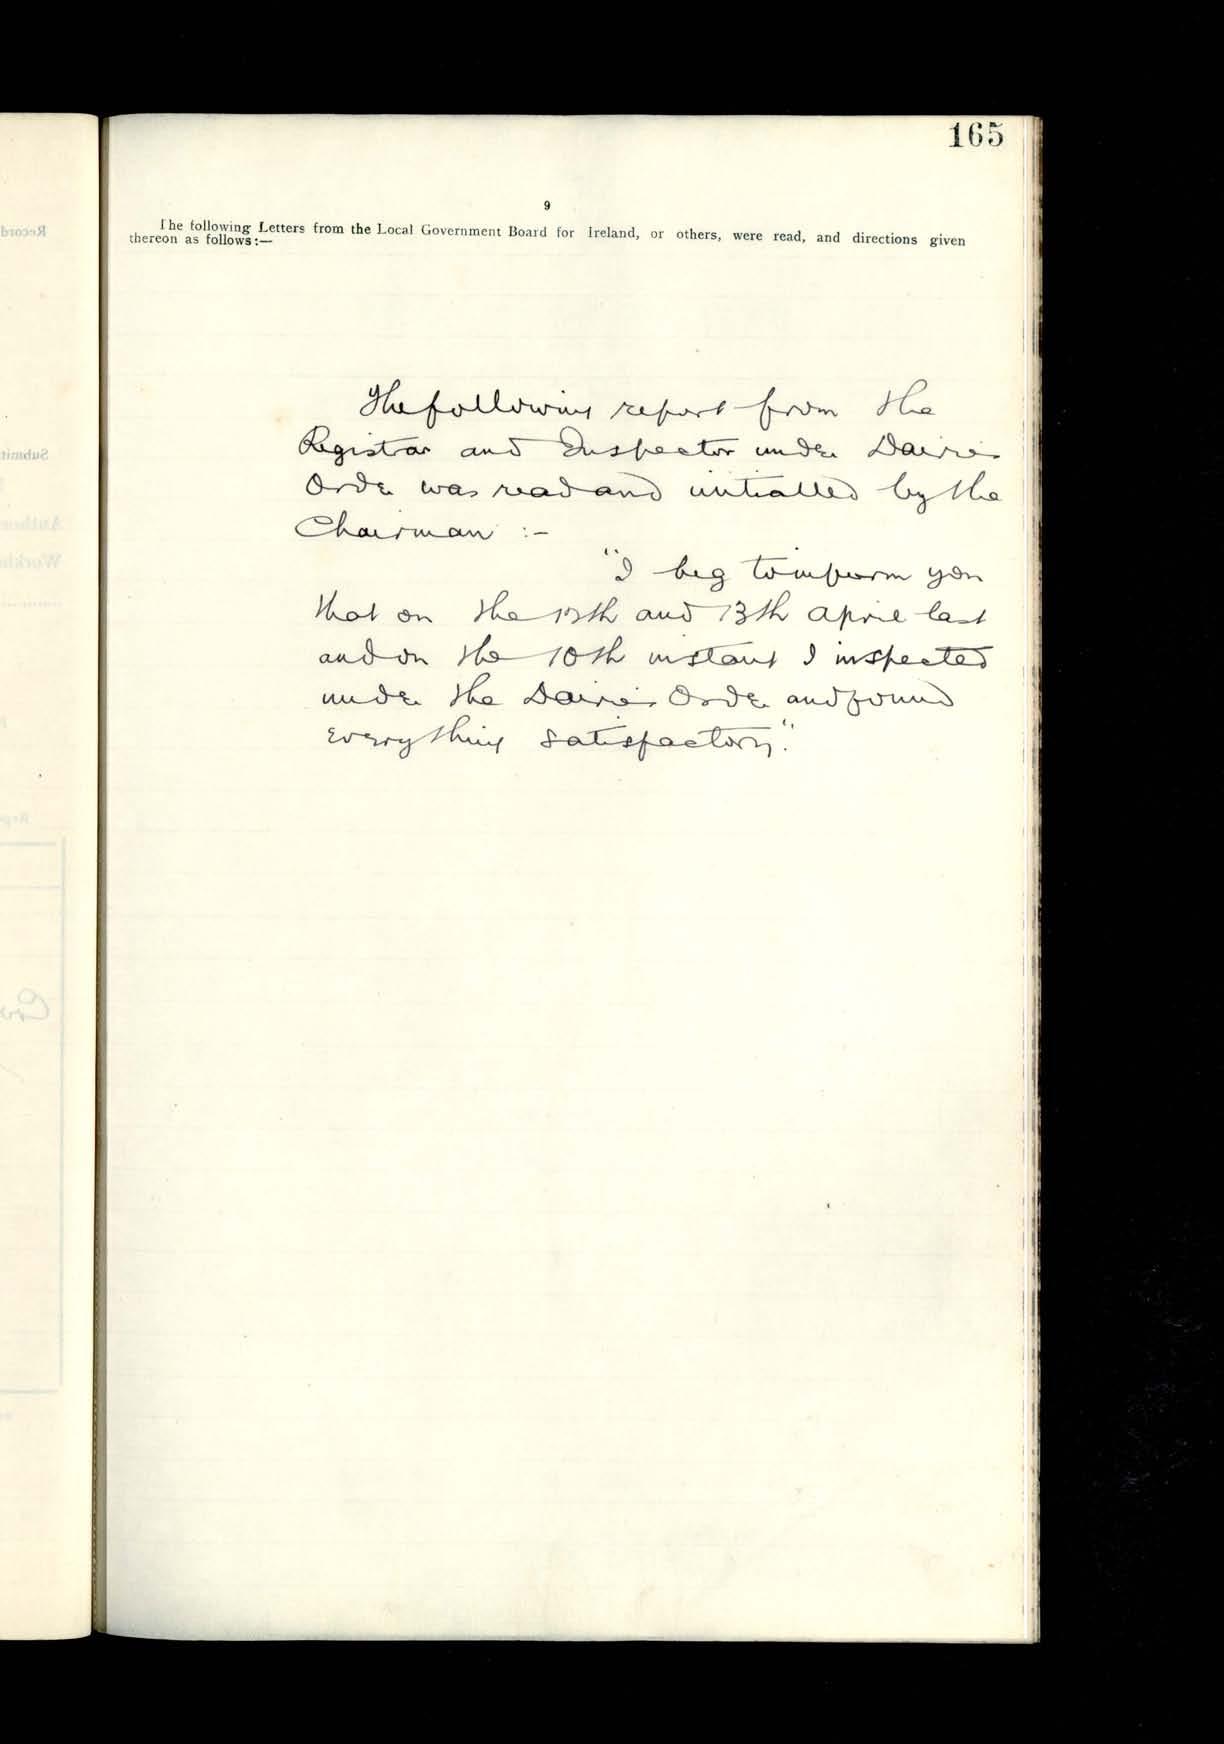 165
9
The following Letters from the Local Government Board for Ireland, or others, were read, and directions given
thereon as follows:—
The following report from the
Registrar and Inspector under Dairies
Order was read and initialled by the
Chairman :-
"I beg to inform you
that on the 12th and 13th April last
and on the 10th instant I inspected
under the Dairies Order and found
everything satisfactory."